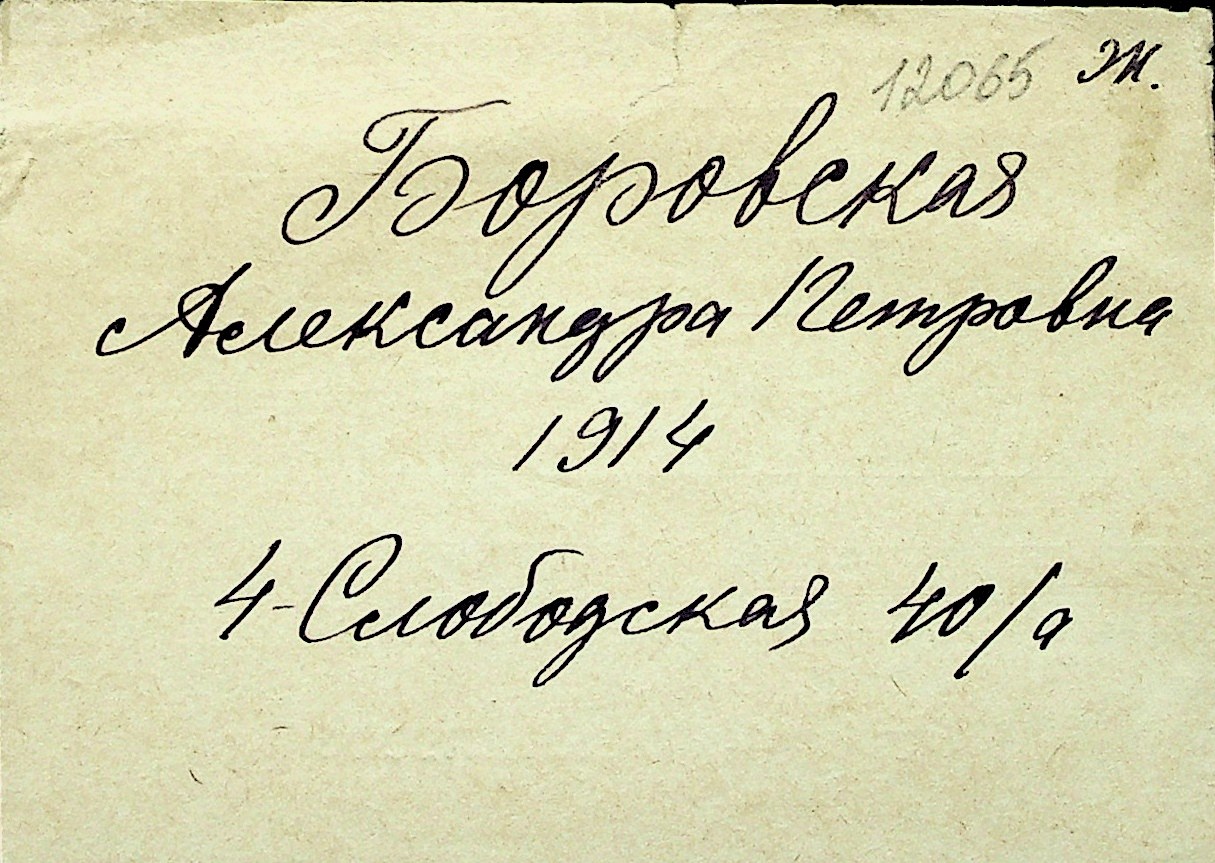 12065 ж.
Боровская
Александра Петровна
1914
4-Слободская 40/а